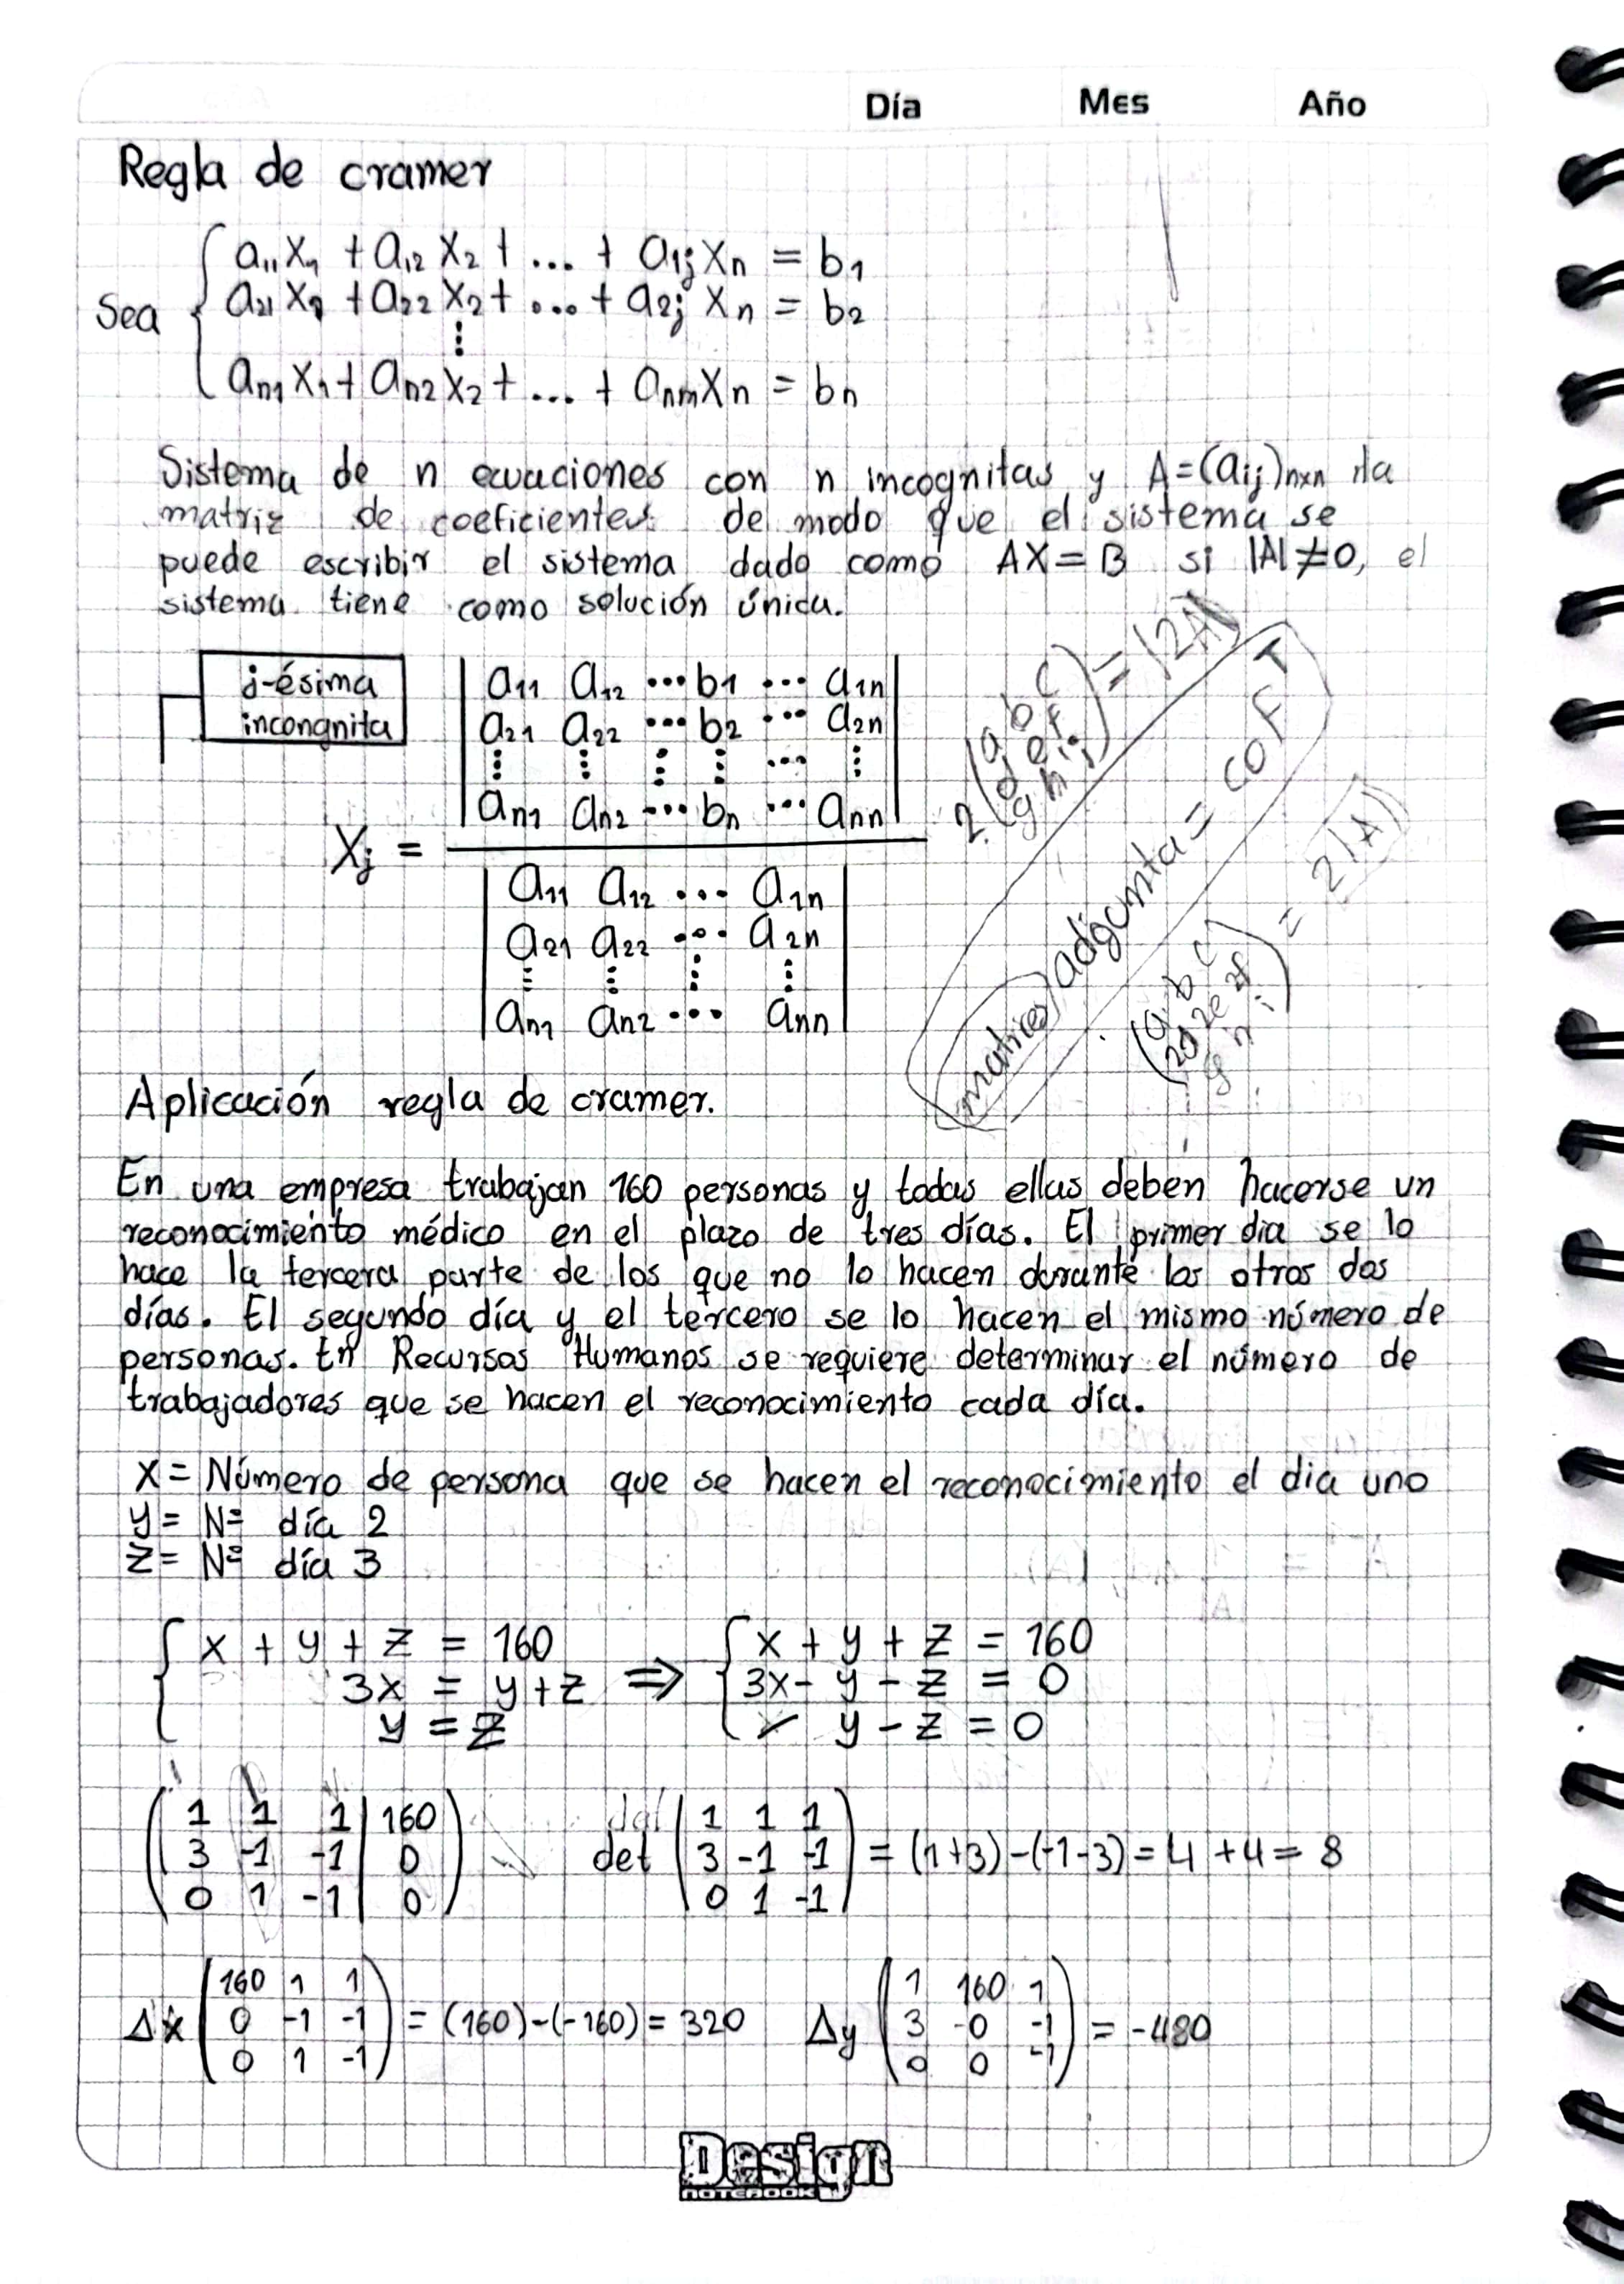 Día Mes Año
Regla de cramer
Sea
a₁₁x₁ + a₁₂x₂ + ... + a₁ⱼxₙ = b₁
a₂₁x₂ + a₂₂x₂ + ... + a₂ⱼxₙ = b₂
⋮
aₙ₁x₁ + aₙ₂x₂ + ... + aₙₘxₙ = bₙ
Sistema de n ecuaciones con n incognitas y A=(aᵢⱼ)ₙₓₙ la
matriz de coeficientes de modo que el sistema se
puede escribir el sistema dado como AX=B si |A|≠0, el
sistema tiene como solución única.
j-ésima
incongnita
a₁₁ a₁₂ ... b1 ... a₁ₙ
a₂₁ a₂₂ ... b₂ ... a₂ₙ
⋮ ⋮ ⋮ ⋮ ... ⋮
aₙ₁ aₙ₂ ... bₙ ... aₙₙ
Xⱼ =
a₁₁ a₁₂ ... a₁ₙ
a₂₁ a₂₂ ... a₂ₙ
⋮ ⋮ ⋮ ⋮
aₙ₁ aₙ₂ ... aₙₙ
2(a b c
d e f
g h i) = |2A|
matrices adjounta = COF T
(a b c
2d 2e 2f
g h i) = 2|A|
Aplicación regla de cramer.
En una empresa trabajan 160 personas y todas ellas deben hacerse un
reconocimiento médico en el plazo de tres días. El primer dia se lo
hace la tercera parte de los que no lo hacen durante los otros dos
días. El segundo día y el tercero se lo hacen el mismo número de
personas. En Recursos Humanos se requiere determinar el número de
trabajadores que se hacen el reconocimiento cada día.
X = Número de persona que se hacen el reconocimiento el dia uno
y = Nº día 2
z = Nº día 3
x + y + z = 160 ⇒ x + y + z = 160
3x = y+z 3x - y - z = 0
y = z y - z = 0
(1 1 1 | 160
3 -1 -1 | 0
0 1 -1 | 0)
det (1 1 1
3 -1 -1
0 1 -1) = (1+3)-(-1-3) = 4 + 4 = 8
Δx (160 1 1
0 -1 -1
0 1 -1) = (160)-(-160) = 320
Δy (1 160 1
3 -0 -1
0 0 -1) = -480
Design
NOTEBOOK